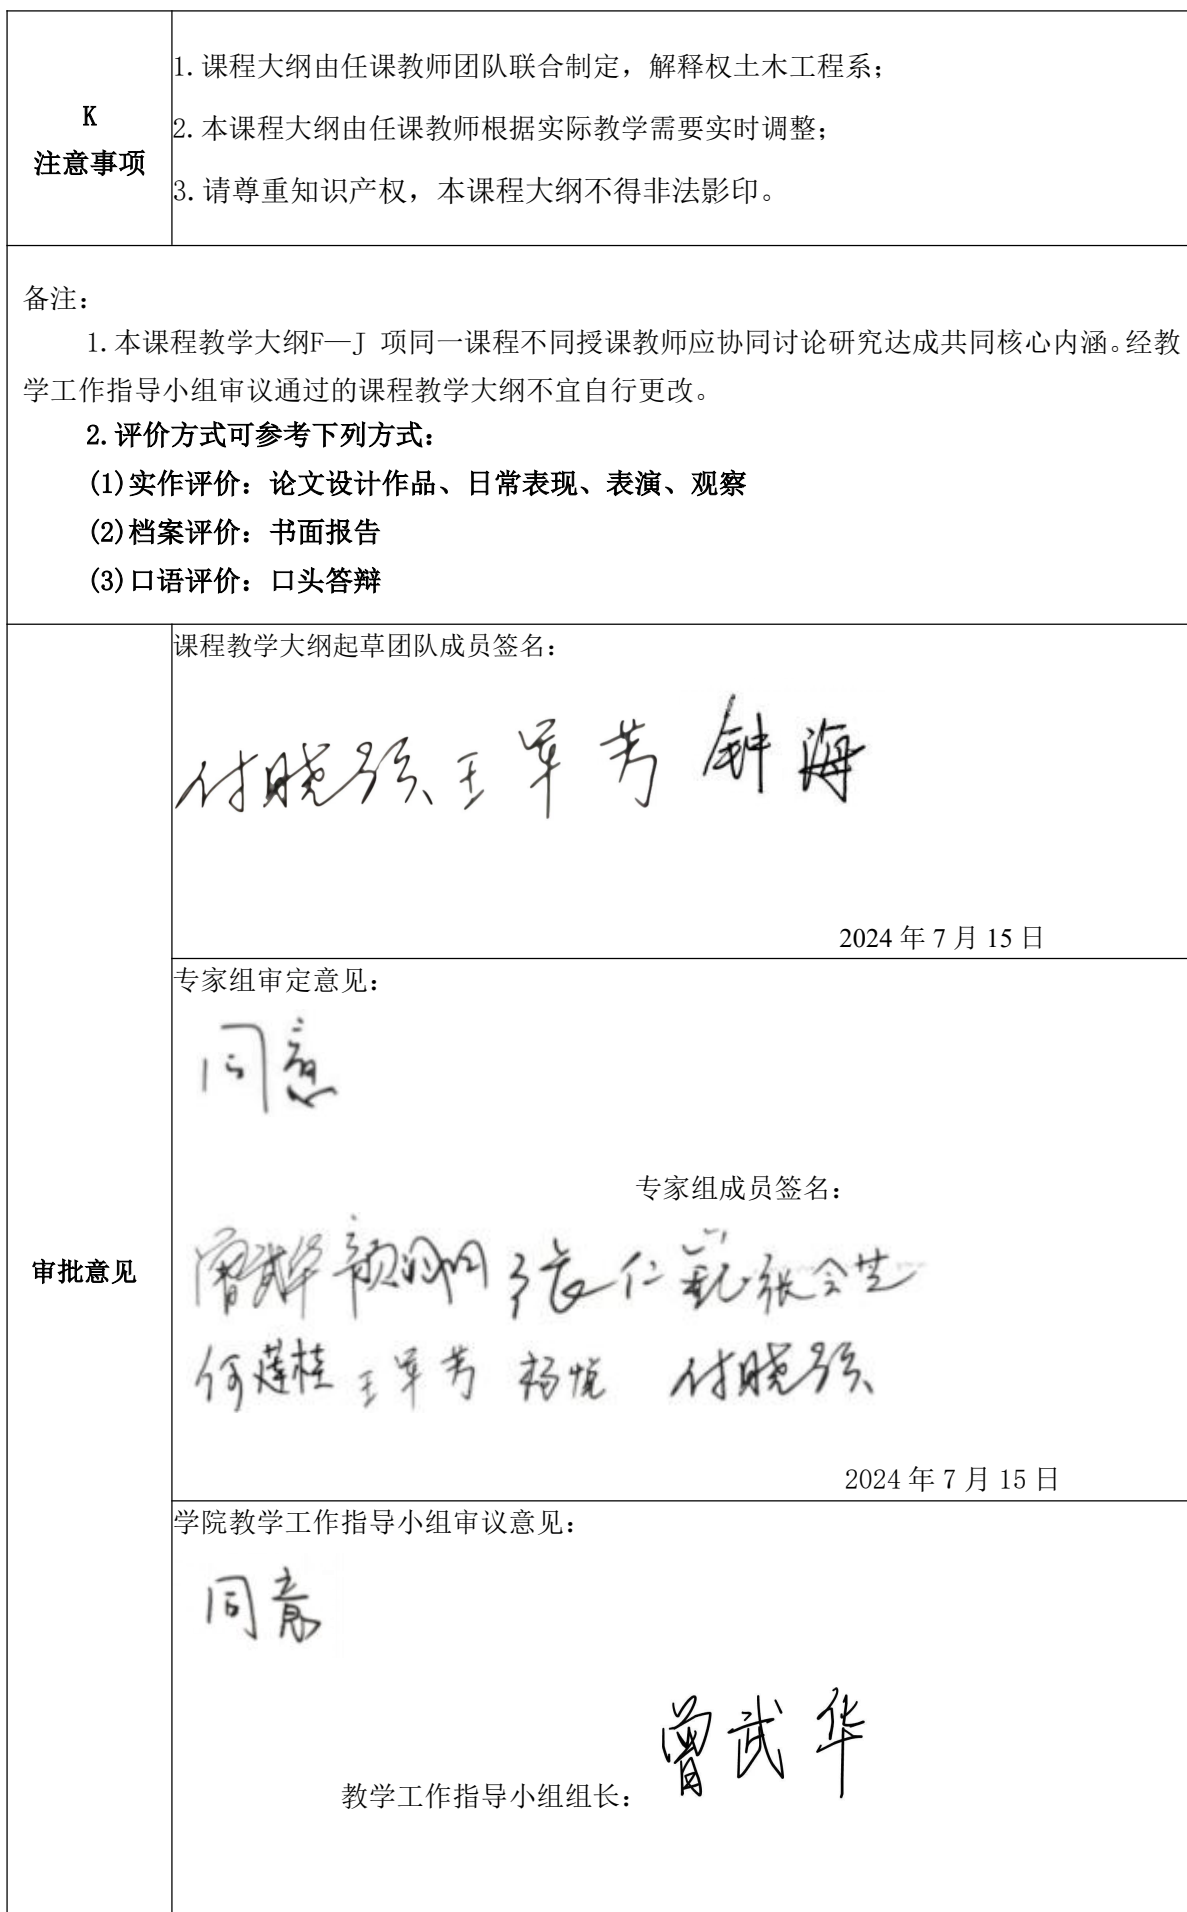 K
注意事项
1.课程大纲由任课教师团队联合制定，解释权土木工程系；
2.本课程大纲由任课教师根据实际教学需要实时调整；
3.请尊重知识产权，本课程大纲不得非法影印。
备注：
1.本课程教学大纲F—J 项同一课程不同授课教师应协同讨论研究达成共同核心内涵。经教
学工作指导小组审议通过的课程教学大纲不宜自行更改。
2.评价方式可参考下列方式：
(1)实作评价：论文设计作品、日常表现、表演、观察
(2)档案评价：书面报告
(3)口语评价：口头答辩
审批意见
课程教学大纲起草团队成员签名：
付晓强 王军芳 钟海
2024 年 7 月 15 日
专家组审定意见：
同意
专家组成员签名：
曾武华 张仁 张会芝
何莲桂 王军芳 杨悦 付晓强
2024 年 7 月 15 日
学院教学工作指导小组审议意见：
同意
教学工作指导小组组长：曾武华